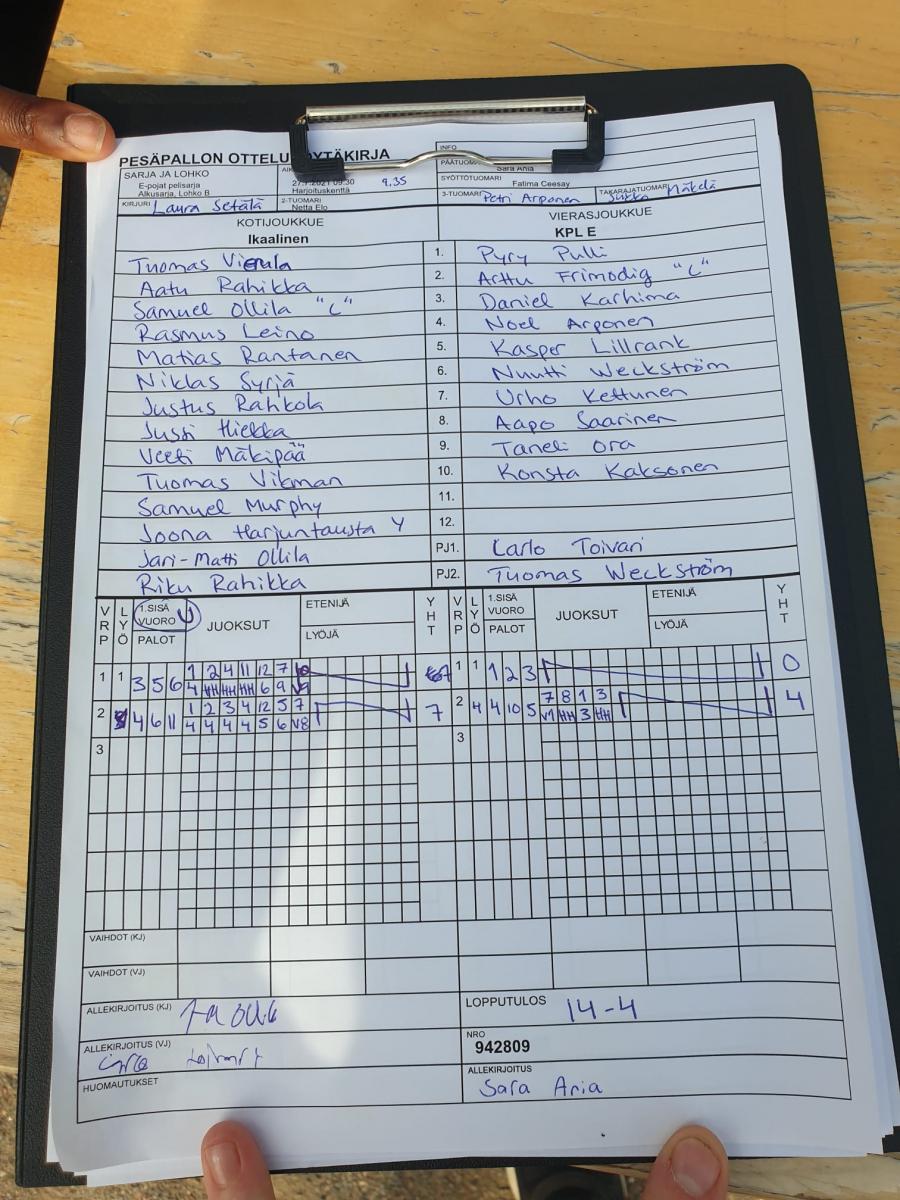 PESÄPALLON OTTELU
INFO
SARJA JA LOHKO
E-pojat pelisarja
Alkusarja, Lohko B
27.7.2021 09:30 9.35
Harjoituskenttä
Sara Aria
SYÖTTÖTUOMARI
Fatima Ceesay
KIRJURI Laura Setälä
2-TUOMARI
Netta Elo
3-TUOMARI Petri Arponen
TAKARAJATUOMARI Mäkelä
KOTIJOUKKUE
Ikaalinen
VIERASJOUKKUE
KPL E
Tuomas Vierula 1. Pyry Pulli
Aatu Rahikka 2. Arttu Frimodig "C"
Samuel Ollila "C" 3. Daniel Karhima
Rasmus Leino 4. Noel Arponen
Matias Rantanen 5. Kasper Lillrank
Niklas Syrjä 6. Nuutti Weckström
Justus Rahkola 7. Urho Kettunen
Jussi Hiekka 8. Aapo Saarinen
Veeti Mäkipää 9. Taneli Ora
Tuomas Vikman 10. Konsta Kaksonen
Samuel Murphy 11.
Joona Harjuntausta Y 12.
Jari-Matti Ollila PJ1. Carlo Toivari
Riku Rahikka PJ2. Tuomas Weckström
VRP LYÖ 1.SISÄ VUORO U PALOT JUOKSUT ETENIJÄ LYÖJÄ YHT VRP LYÖ 1.SISÄ VUORO PALOT JUOKSUT ETENIJÄ LYÖJÄ YHT
1 1 3 5 6 1 2 4 11 12 7 7 1 1 1 2 3 0
4 HH HH HH 6 9
2 4 6 11 1 2 3 4 12 5 7 7 2 4 4 10 5 7 8 1 3 4
4 4 4 4 5 6 V8 V1 HH 3 HH
3 3
VAIHDOT (KJ)
VAIHDOT (VJ)
ALLEKIRJOITUS (KJ)
LOPPUTULOS 14-4
ALLEKIRJOITUS (VJ)
NRO
942809
HUOMAUTUKSET
ALLEKIRJOITUS
Sara Aria